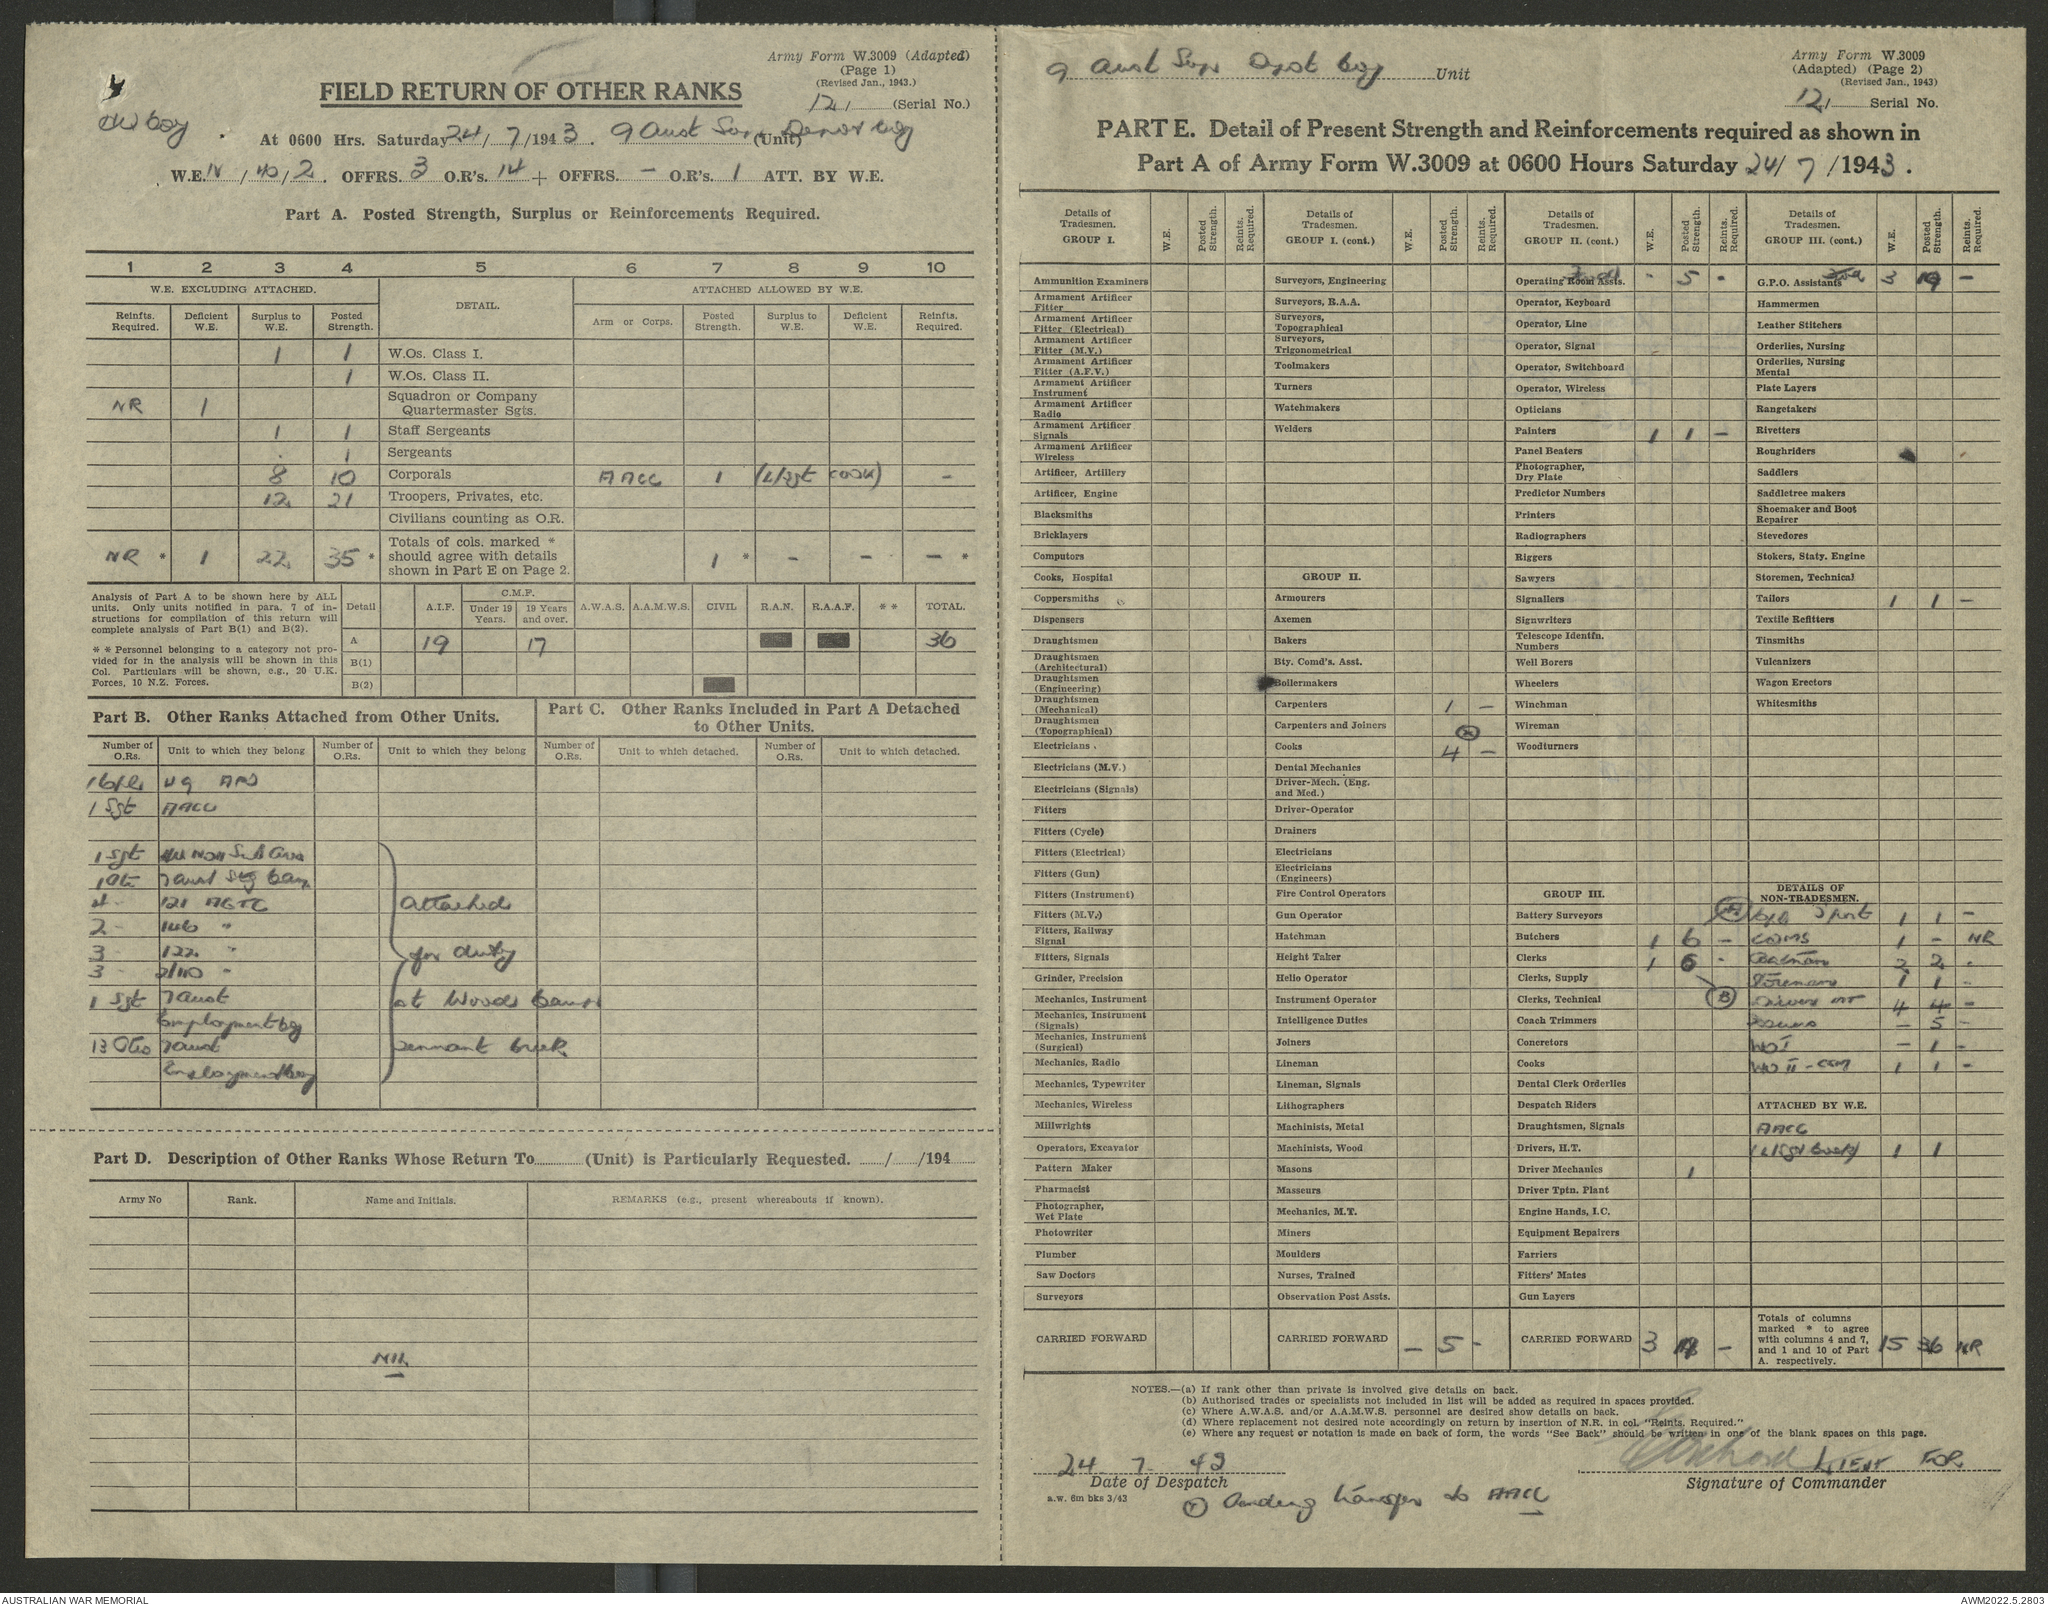 Army Form W.3009 (Adapted)
(Page 1)
(Revised Jan., 1943.)
12 (Serial No.)
FIELD RETURN OF OTHER RANKS
At 0600 Hrs. Saturday 24/7/1943. 9 Aust Sup Depot Coy (Unit)
W.E. IV/40/2. OFFRS. 3 O.R's. 14 + OFFRS. — O.R's. 1 ATT. BY W.E.
Part A. Posted Strength, Surplus or Reinforcements Required.
1 2 3 4 5 6 7 8 9 10
W.E. EXCLUDING ATTACHED. DETAIL. ATTACHED ALLOWED BY W.E.
Reinfts. Required. Deficient W.E. Surplus to W.E. Posted Strength. Arm or Corps. Posted Strength. Surplus to W.E. Deficient W.E. Reinfts. Required.
1 1 W.Os. Class I.
1 W.Os. Class II.
NR 1 Squadron or Company Quartermaster Sgts.
1 1 Staff Sergeants
. 1 Sergeants
8 10 Corporals AACC 1 (L/Sgt Cook) —
12 21 Troopers, Privates, etc.
Civilians counting as O.R.
NR * 1 22 35 * Totals of cols. marked * should agree with details shown in Part E on Page 2. 1 * — — — *
Analysis of Part A to be shown here by ALL units. Only units notified in para. 7 of instructions for compilation of this return will complete analysis of Part B(1) and B(2).
* * Personnel belonging to a category not provided for in the analysis will be shown in this Col. Particulars will be shown, e.g., 20 U.K. Forces, 10 N.Z. Forces.
Detail A.I.F. C.M.F. Under 19 Years. 19 Years and over. A.W.A.S. A.A.M.W.S. CIVIL R.A.N. R.A.A.F. * * TOTAL.
A 19 17 36
B(1)
B(2)
Part B. Other Ranks Attached from Other Units.
Part C. Other Ranks Included in Part A Detached to Other Units.
Number of O.Rs. Unit to which they belong Number of O.Rs. Unit to which they belong Number of O.Rs. Unit to which detached. Number of O.Rs. Unit to which detached.
1 Sgt AACC
1 Sgt
4 121 AGTC attached
2 146 "
3 122 " for duty
3 2/110 "
1 Sgt 7 Aust at Woods Camp
Employment Coy
13 ORs 7 Aust Tennant Creek
Employment Coy
Part D. Description of Other Ranks Whose Return To (Unit) is Particularly Requested. / /194
Army No Rank. Name and Initials. REMARKS (e.g., present whereabouts if known).
NIL
9 Aust Sup Depot Coy Unit
Army Form W.3009
(Adapted) (Page 2)
(Revised Jan., 1943)
12 Serial No.
PART E. Detail of Present Strength and Reinforcements required as shown in
Part A of Army Form W.3009 at 0600 Hours Saturday 24/7/1943.
Details of Tradesmen. GROUP I. W.E. Posted Strength. Reints. Required.
Ammunition Examiners
Armament Artificer Fitter
Armament Artificer Fitter (Electrical)
Armament Artificer Fitter (M.V.)
Armament Artificer Fitter (A.F.V.)
Armament Artificer Instrument
Armament Artificer Radio
Armament Artificer Signals
Armament Artificer Wireless
Artificer, Artillery
Artificer, Engine
Blacksmiths
Bricklayers
Computors
Cooks, Hospital
Coppersmiths
Dispensers
Draughtsmen
Draughtsmen (Architectural)
Draughtsmen (Engineering)
Draughtsmen (Mechanical)
Draughtsmen (Topographical)
Electricians
Electricians (M.V.)
Electricians (Signals)
Fitters
Fitters (Cycle)
Fitters (Electrical)
Fitters (Gun)
Fitters (Instrument)
Fitters (M.V.)
Fitters, Railway Signal
Fitters, Signals
Grinder, Precision
Mechanics, Instrument
Mechanics, Instrument (Signals)
Mechanics, Instrument (Surgical)
Mechanics, Radio
Mechanics, Typewriter
Mechanics, Wireless
Millwrights
Operators, Excavator
Pattern Maker
Pharmacist
Photographer, Wet Plate
Photowriter
Plumber
Saw Doctors
Surveyors
CARRIED FORWARD
Details of Tradesmen. GROUP I. (cont.) W.E. Posted Strength. Reints. Required.
Surveyors, Engineering
Surveyors, R.A.A.
Surveyors, Topographical
Surveyors, Trigonometrical
Toolmakers
Turners
Watchmakers
Welders
GROUP II.
Armourers
Axemen
Bakers
Bty. Comd's. Asst.
Boilermakers
Carpenters 1 —
Carpenters and Joiners
Cooks 4 —
Dental Mechanics
Driver-Mech. (Eng. and Med.)
Driver-Operator
Drainers
Electricians
Electricians (Engineers)
Fire Control Operators
Gun Operator
Hatchman
Height Taker
Helio Operator
Instrument Operator
Intelligence Duties
Joiners
Lineman
Lineman, Signals
Lithographers
Machinists, Metal
Machinists, Wood
Masons
Masseurs
Mechanics, M.T.
Miners
Moulders
Nurses, Trained
Observation Post Assts.
CARRIED FORWARD — 5 -
Details of Tradesmen. GROUP II. (cont.) W.E. Posted Strength. Reints. Required.
Operating Room Assts. - 5 -
Operator, Keyboard
Operator, Line
Operator, Signal
Operator, Switchboard
Operator, Wireless
Opticians
Painters 1 1 —
Panel Beaters
Photographer, Dry Plate
Predictor Numbers
Printers
Radiographers
Riggers
Sawyers
Signallers
Signwriters
Telescope Identfn. Numbers
Well Borers
Wheelers
Winchman
Wireman
Woodturners
GROUP III.
Battery Surveyors
Butchers 1 6 —
Clerks 1 6 -
Clerks, Supply
Clerks, Technical (B)
Coach Trimmers
Concretors
Cooks
Dental Clerk Orderlies
Despatch Riders
Draughtsmen, Signals
Drivers, H.T.
Driver Mechanics 1
Driver Tptn. Plant
Engine Hands, I.C.
Equipment Repairers
Farriers
Fitters' Mates
Gun Layers
CARRIED FORWARD 3 19 —
Details of Tradesmen. GROUP III. (cont.) W.E. Posted Strength. Reints. Required.
G.P.O. Assistants 3 19 —
Hammermen
Leather Stitchers
Orderlies, Nursing
Orderlies, Nursing Mental
Plate Layers
Rangetakers
Rivetters
Roughriders
Saddlers
Saddletree makers
Shoemaker and Boot Repairer
Stevedores
Stokers, Staty. Engine
Storemen, Technical
Tailors 1 1 —
Textile Refitters
Tinsmiths
Vulcanizers
Wagon Erectors
Whitesmiths
DETAILS OF NON-TRADESMEN.
1 1 —
CQMS 1 — NR
Batmen 2 2 -
Storeman 1 1 -
Drivers MT 4 4 —
Issuers — 5 -
WO I — 1 -
WO II - CSM 1 1 —
ATTACHED BY W.E.
AACC
(L/Sgt Cook) 1 1
Totals of columns marked * to agree with columns 4 and 7, and 1 and 10 of Part A. respectively. 15 36 NR
NOTES.—(a) If rank other than private is involved give details on back.
(b) Authorised trades or specialists not included in list will be added as required in spaces provided.
(c) Where A.W.A.S. and/or A.A.M.W.S. personnel are desired show details on back.
(d) Where replacement not desired note accordingly on return by insertion of N.R. in col. "Reints. Required."
(e) Where any request or notation is made on back of form, the words "See Back" should be written in one of the blank spaces on this page.
24 7 43
Date of Despatch
LIEUT FOR
Signature of Commander
a.w. 6m bks 3/43
Pending transfer to AACC
AUSTRALIAN WAR MEMORIAL
AWM2022.5.2803